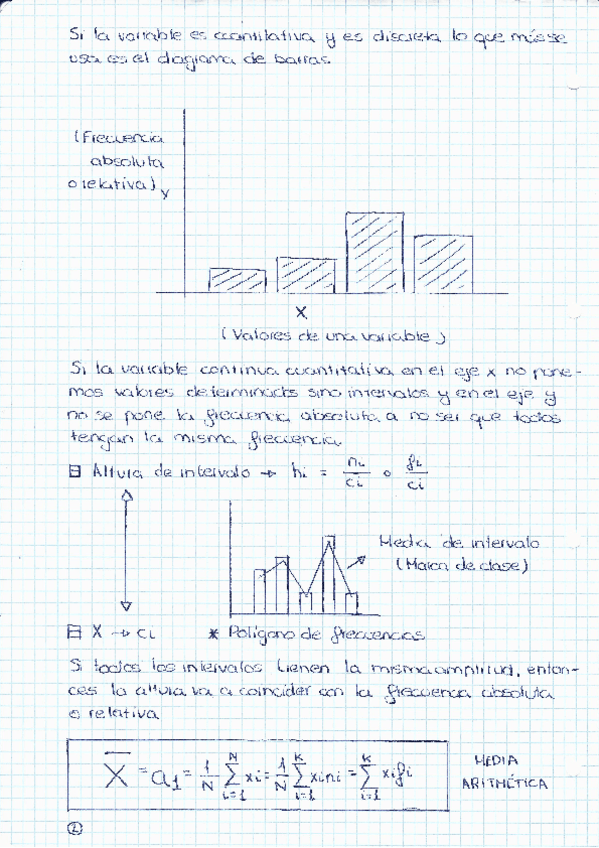 Si la variable es cuantitativa y es discreta lo que más se
usa es el diagrama de barras.
(Frecuencia
absoluta
o relativa) y
X
(Valores de una variable)
Si la variable continua cuantitativa en el eje x no pone-
mos valores determinados sino intervalos y en el eje y
no se pone la frecuencia absoluta a no ser que todos
tengan la misma frecuencia.
Altura de intervalo → hi = ni/ci o fi/ci
Media de intervalo
(Marca de clase)
X → ci * Polígono de frecuencias
Si todos los intervalos tienen la misma amplitud, enton-
ces la altura va a coincider con la frecuencia absoluta
o relativa
X̄ = a₁ = 1/N ∑ᵢ₌₁ᴺ xi = 1/N ∑ᵢ₌₁ᴷ xini = ∑ᵢ₌₁ᴷ xifi
MEDIA
ARITMÉTICA
2